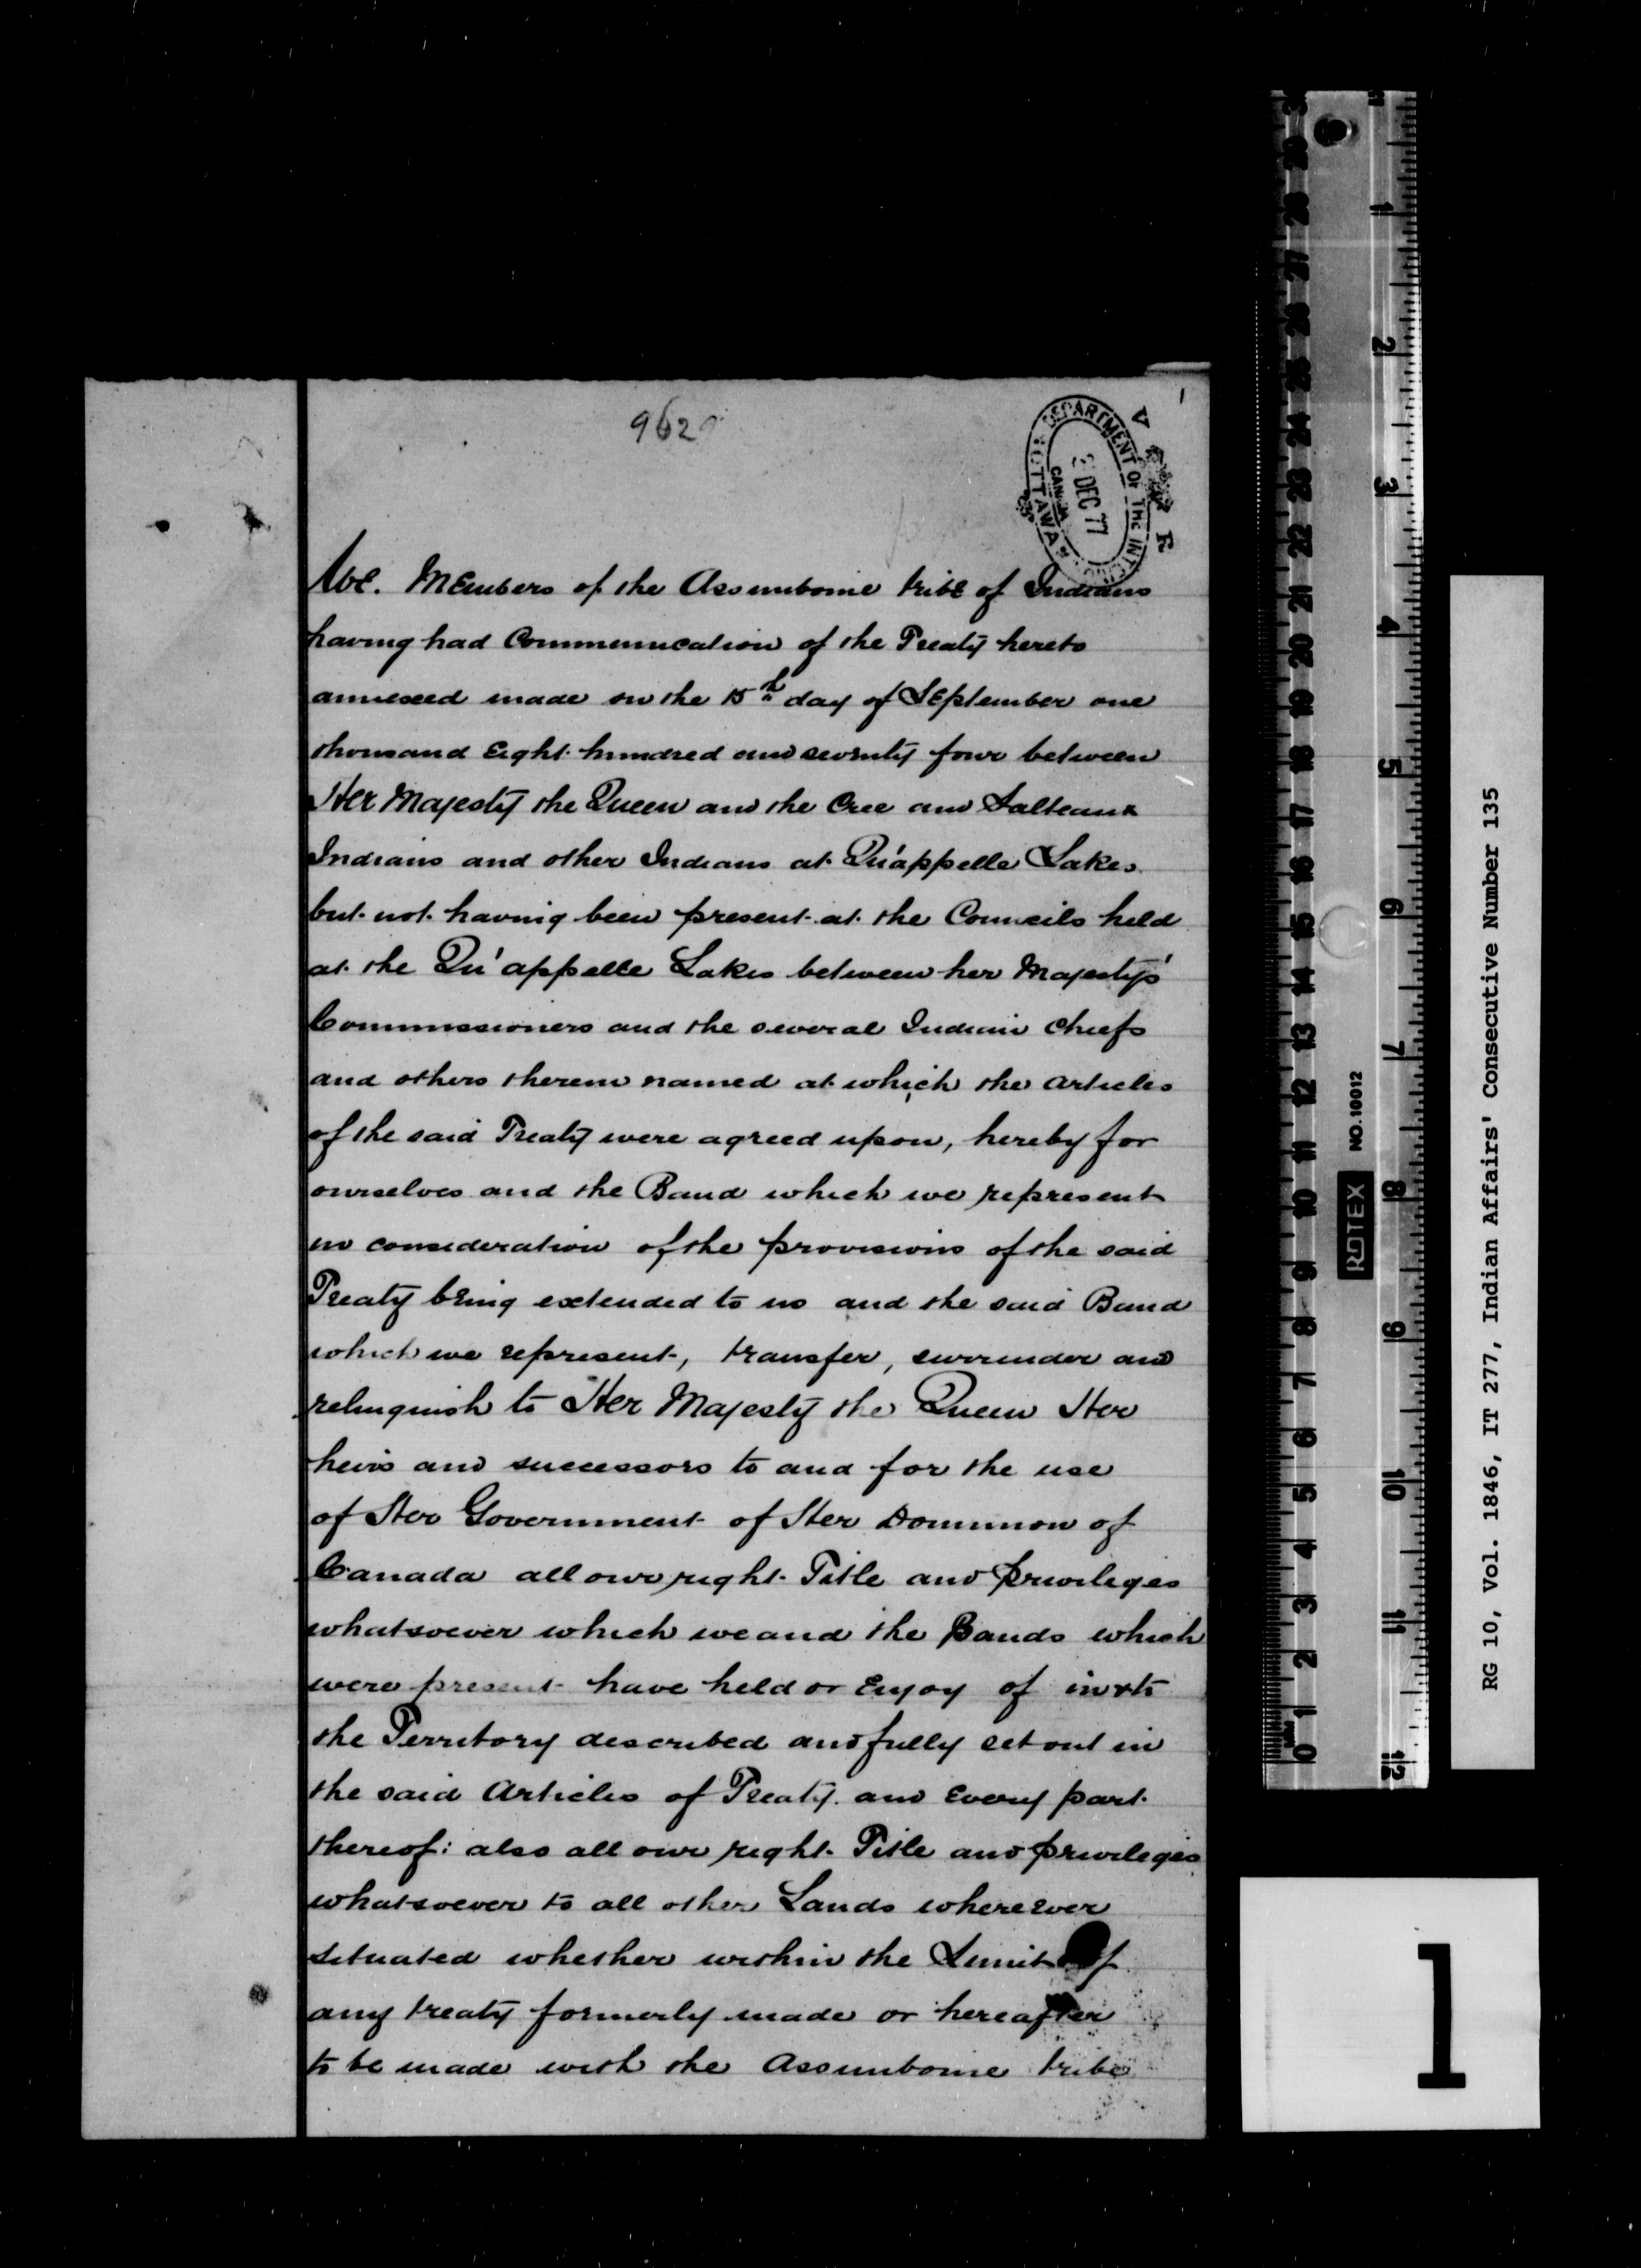 962
1
V R
DEPARTMENT OF THE INTERIOR
DEC 77
CANADA
OTTAWA
We. Members of the Assiniboine tribe of Indians
having had Communication of the Treaty hereto
annexed made on the 15th day of September one
thousand Eight hundred and seventy four between
Her Majesty the Queen and the Cree and Salteaux
Indians and other Indians at Qu'appelle Lakes
but not having been present at the Councils held
at the Qu'appelle Lakes between her Majestys'
Commissioners and the several Indian Chiefs
and others therein named at which the articles
of the said Treaty were agreed upon, hereby for
ourselves and the Band which we represent
in consideration of the provisions of the said
Treaty being extended to us and the said Band
which we represent, transfer, surrender and
relinquish to Her Majesty the Queen Her
heirs and successors to and for the use
of Her Government of Her Dominion of
Canada all our right Title and Privileges
whatsoever which we and the Bands which
were present have held or Enjoy of in or to
the Territory described and fully set out in
the said Articles of Treaty and Every part
thereof: also all our right Title and privileges
whatsoever to all other Lands wherever
situated whether within the Limits of
any treaty formerly made or hereafter
to be made with the Assiniboine tribe
NO. 10012
ROTEX
RG 10, Vol. 1846, IT 277, Indian Affairs' Consecutive Number 135
1